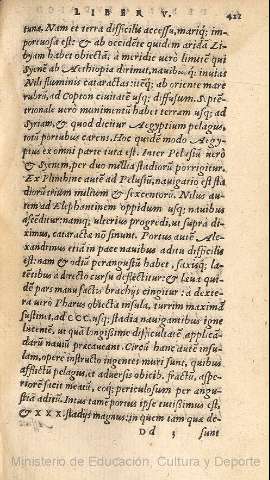 LIBER V. 422
tuna. Nam et terra difficilis accessu, mariq́; im-
portuosa est: & ab occidente quidem arida Li-
byam habet obiectā, à meridie verò limitē qui
Syenē ab Aethiopia dirimit, nauibusq́; inuias
Nili fluminis cataractas: itēq; ab oriente mare
rubrū, ad Copton ciuitatē usq; diffusum. Septē-
trionale verò munimentū habet terram usq; ad
Syriam, & quod dicitur Aegyptium pelagus,
totū portubus carens. Hoc quidē modo Aegy-
ptus ex omni parte tuta est. Inter Pelusiū verò
& Syenem, per duo millia stadiorū porrigitur.
Ex Plinthine autē ad Pelusiū, nauigatio est sta
diorū trium millium & sexcentorū. Nilus au-
tem ad Elephantinem oppidum usq; nauibus
ascēditur: namq; ulterius progredi, ut suprà di-
ximus, cataractæ nō sinunt. Portus autē Ale-
xandrinus etiā in pace nauibus aditu difficilis
est: nam & ostiū perangustū habet, saxisq́; la-
tētibus à directo cursu deflectitur: & læua qui-
dē pars manufactis brachijs cingitur: à dexte-
ra verò Pharus obiecta insula, turrim maximā
sustinet, ad CCC. usq; stadia nauigantibus igne
lucentē, ut quā longissimè difficultatē applicā-
darū nauiū præcaueant. Circū hanc autē insu-
lam, opere instructo ingentes muri sunt, quibus
afflictū pelagus, et aduersis obicib. fractū, aspe-
riorē facit meatū, eoq́; periculosum per angu-
stiā aditū. Intus tamē portus ipse tutissimus est,
& XXX. stadijs magnus: in quem tam quæ de-
Dd 3 sunt
Ministerio de Educación, Cultura y Deporte